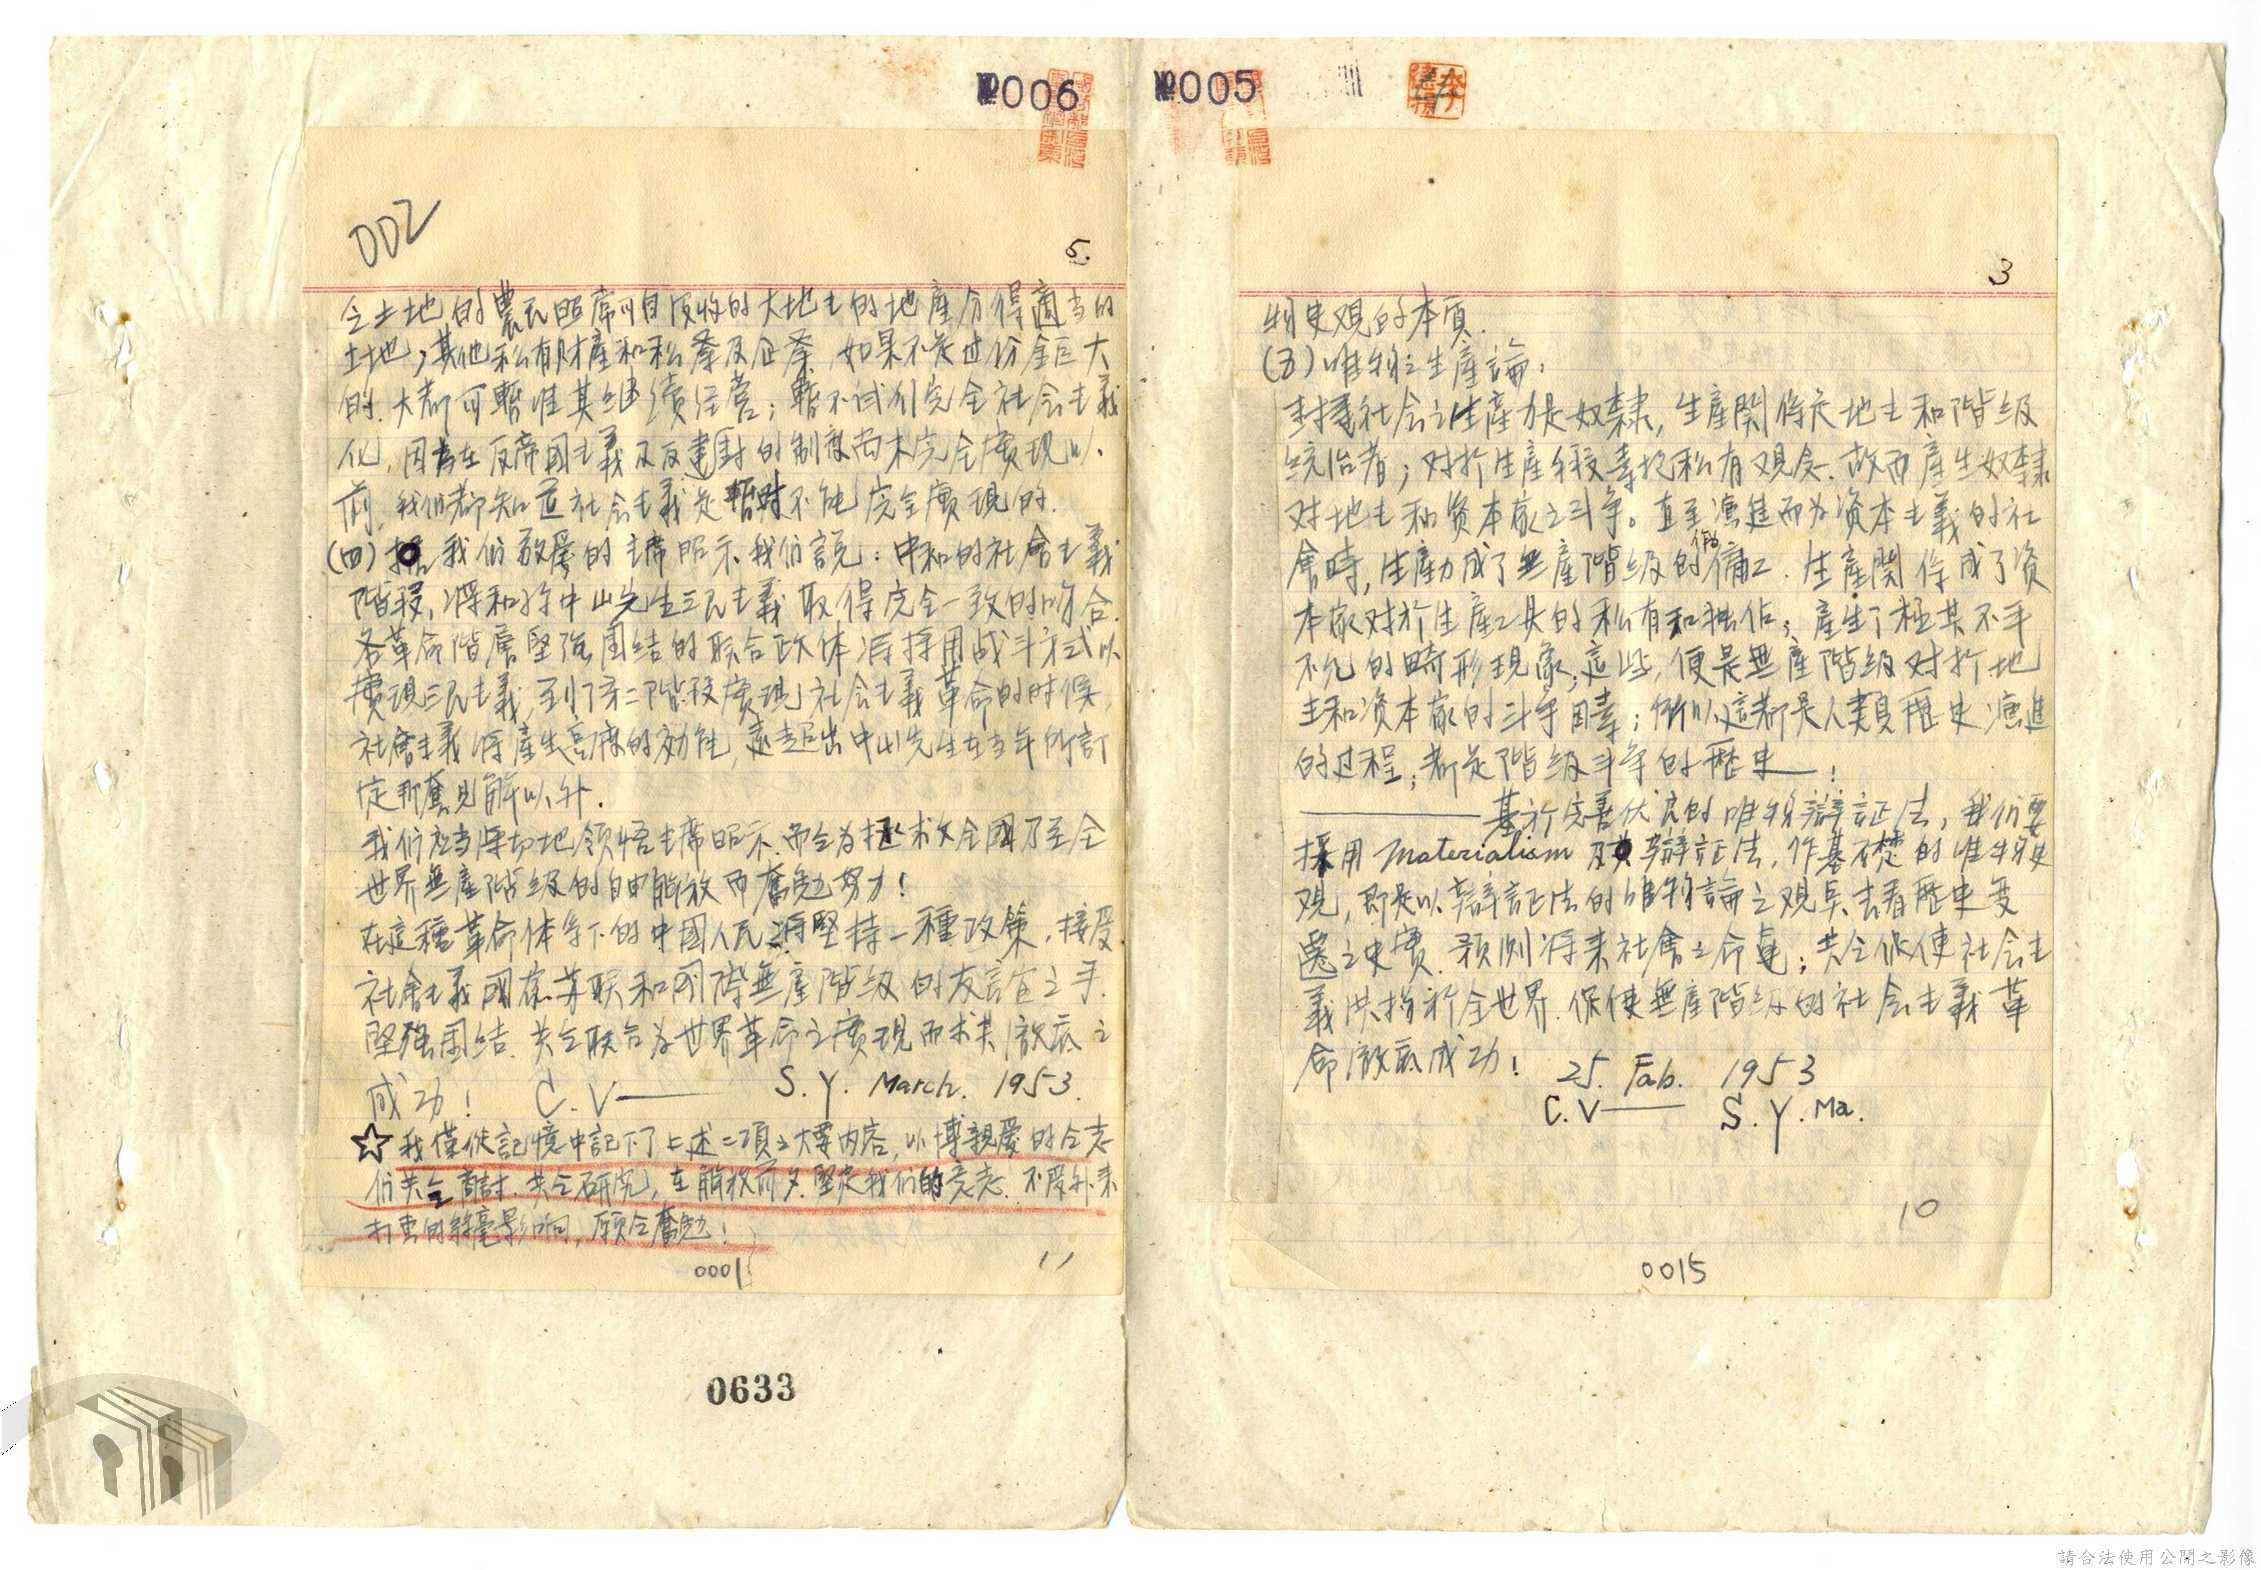 №006
002
5.
仝土地的農民照常可自没收的大地主的地產分得適当的
土地，其他私有財產和私產及企業，如果不是过份鉅大
的，大都可暫准其继續经营；暫不试行完全社会主義
化，因为在反帝國主義及反建封的制度尚未完全實现以
前，我们都知道社会主義是暫时不能完全實现的.
(四) 我们敬爱的主席昭示我们説：中和的社會主義
階段，将和孙中山先生三民主義取得完全一致的吻合.
各革命階層堅强團结的联合政体将採用战斗方式以
實现三民主義，到了第二階段實现社会主義革命的时候，
社會主義将產生高度的効能，遠超出中山先生在当年所訂
定那舊見解以外.
我们应当深切地领悟主席昭示，而全为拯救全國乃至全
世界無產階级的自由解放而奮勉努力！
在這種革命体系下的中國人民，将堅持一種政策，接受
社會主義國家苏联和國際無產階级的友誼之手.
堅强團结，共仝联合为世界革命之實现而求其澈底之
成功！ C.V—— S.Y. March. 1953.
☆我僅從記憶中記下了上述二項之大要内容，以博親愛的仝志
们共仝商討，共仝研究，在解放前夕，堅定我们的意志，不受外来
打击的絲毫影响，願仝奮勉！
11
0001
0633
№005
3
物史观的本質.
(五)唯物之生產論：
封建社会之生產力是奴隸，生產関係是地主和階级
統治者；对於生產手段素抱私有观念，故而產生奴隸
对地主和资本家之斗争。直至演進而为资本主義的社
會時，生產力成了無產階级的傭工，生產関係成了资
本家对於生產工具的私有和独佔，產生了極其不平
不允的畸形现象；這些，便是無產階级对於地
主和资本家的斗争因素；所以這都是人類歷史演進
的过程，都是階级斗争的歷史——！
————基於完善优良的唯物辯証法，我们要
採用 Materialism 及其辯証法，作基本楚的唯物史
观，即是以辯証法的唯物論之观臭去看歷史变
遷之史實，預測将来社會之命運；共仝促使社会主
義洪揚於全世界，保使無產階级的社会主義革
命澈底成功！
25. Fab. 1953
C.V—— S.Y. Ma.
10
0015
請合法使用公開之影像